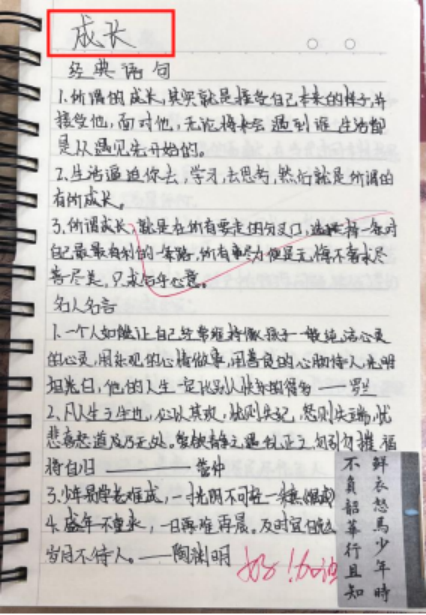 成长
经典语句
1.所谓的成长,其实就是接受自己本来的样子,并
接受他,面对他,无论将来会遇到谁,生活都
是从遇见先开始的。
2.生活逼迫你去,学习,去思考,然后就是所谓的
有所成长。
3.所谓成长,就是在所有要走的分叉口,选择一条对
自己最最有利的一条路,所有
善尽美,只求
名人名言
1.一个人如能让自己经常维持像孩子一般纯洁心灵
的心灵,用乐观的心情做事,用善良的心肠待人,光明
坦白,他的人生一定比别人快乐的得多——罗兰
2.凡人之生也,必以其欢,忧则失纪,怒则失端,忧
悲喜怒道乃无处,
将自归——管仲
3.少年易学老难成,一寸光阴不可轻
4.盛年不重来,一日再难再晨。及时宜自勉
岁月不待人。——陶渊明
好!加油
鲜衣怒馬少年時
不負韶華行且知